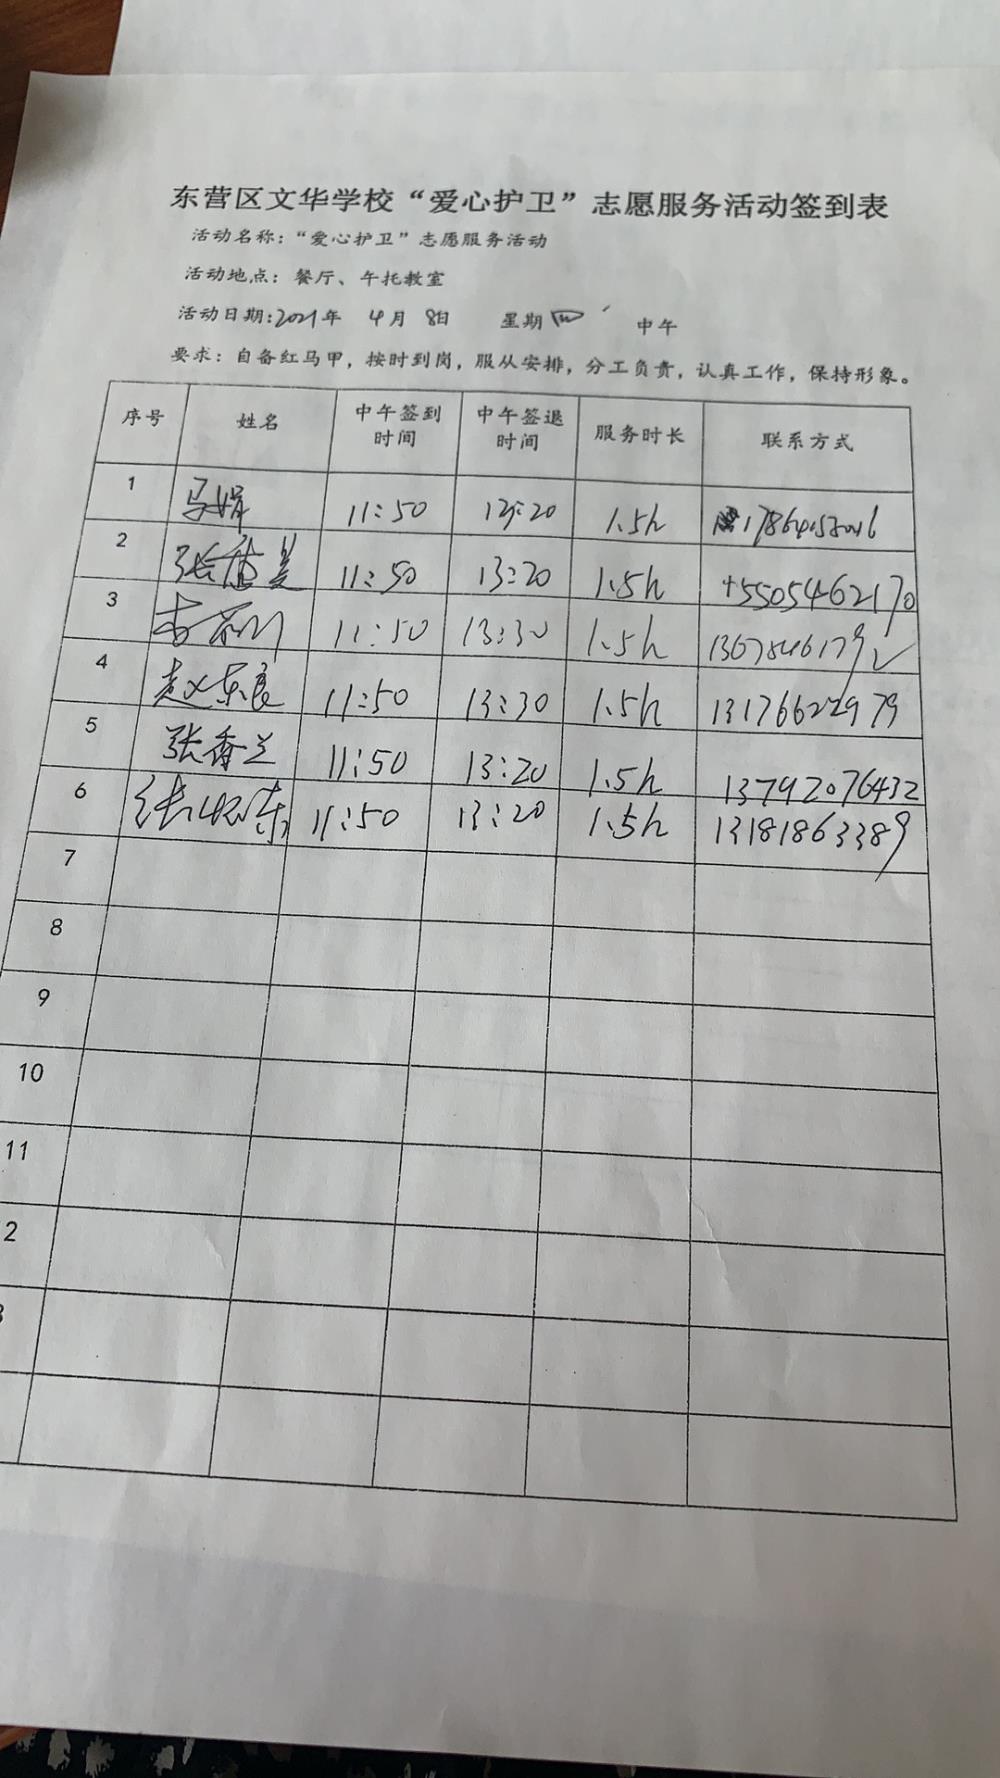 东营区文华学校“爱心护卫”志愿服务活动签到表
活动名称：“爱心护卫”志愿服务活动
活动地点：餐厅、午托教室
活动日期：2021年 4月 8日 星期四 中午
要求：自备红马甲，按时到岗，服从安排，分工负责，认真工作，保持形象。
序号 姓名 中午签到时间 中午签退时间 服务时长 联系方式
1 马娟 11:50 13:20 1.5h
2 11:50 13:20 1.5h 15505462170
3 11:50 13:30 1.5h
4 赵东良 11:50 13:30 1.5h 13176622979
5 张香兰 11:50 13:20 1.5h 13792076432
6 11:50 13:20 1.5h 13181863389
7
8
9
10
11
2